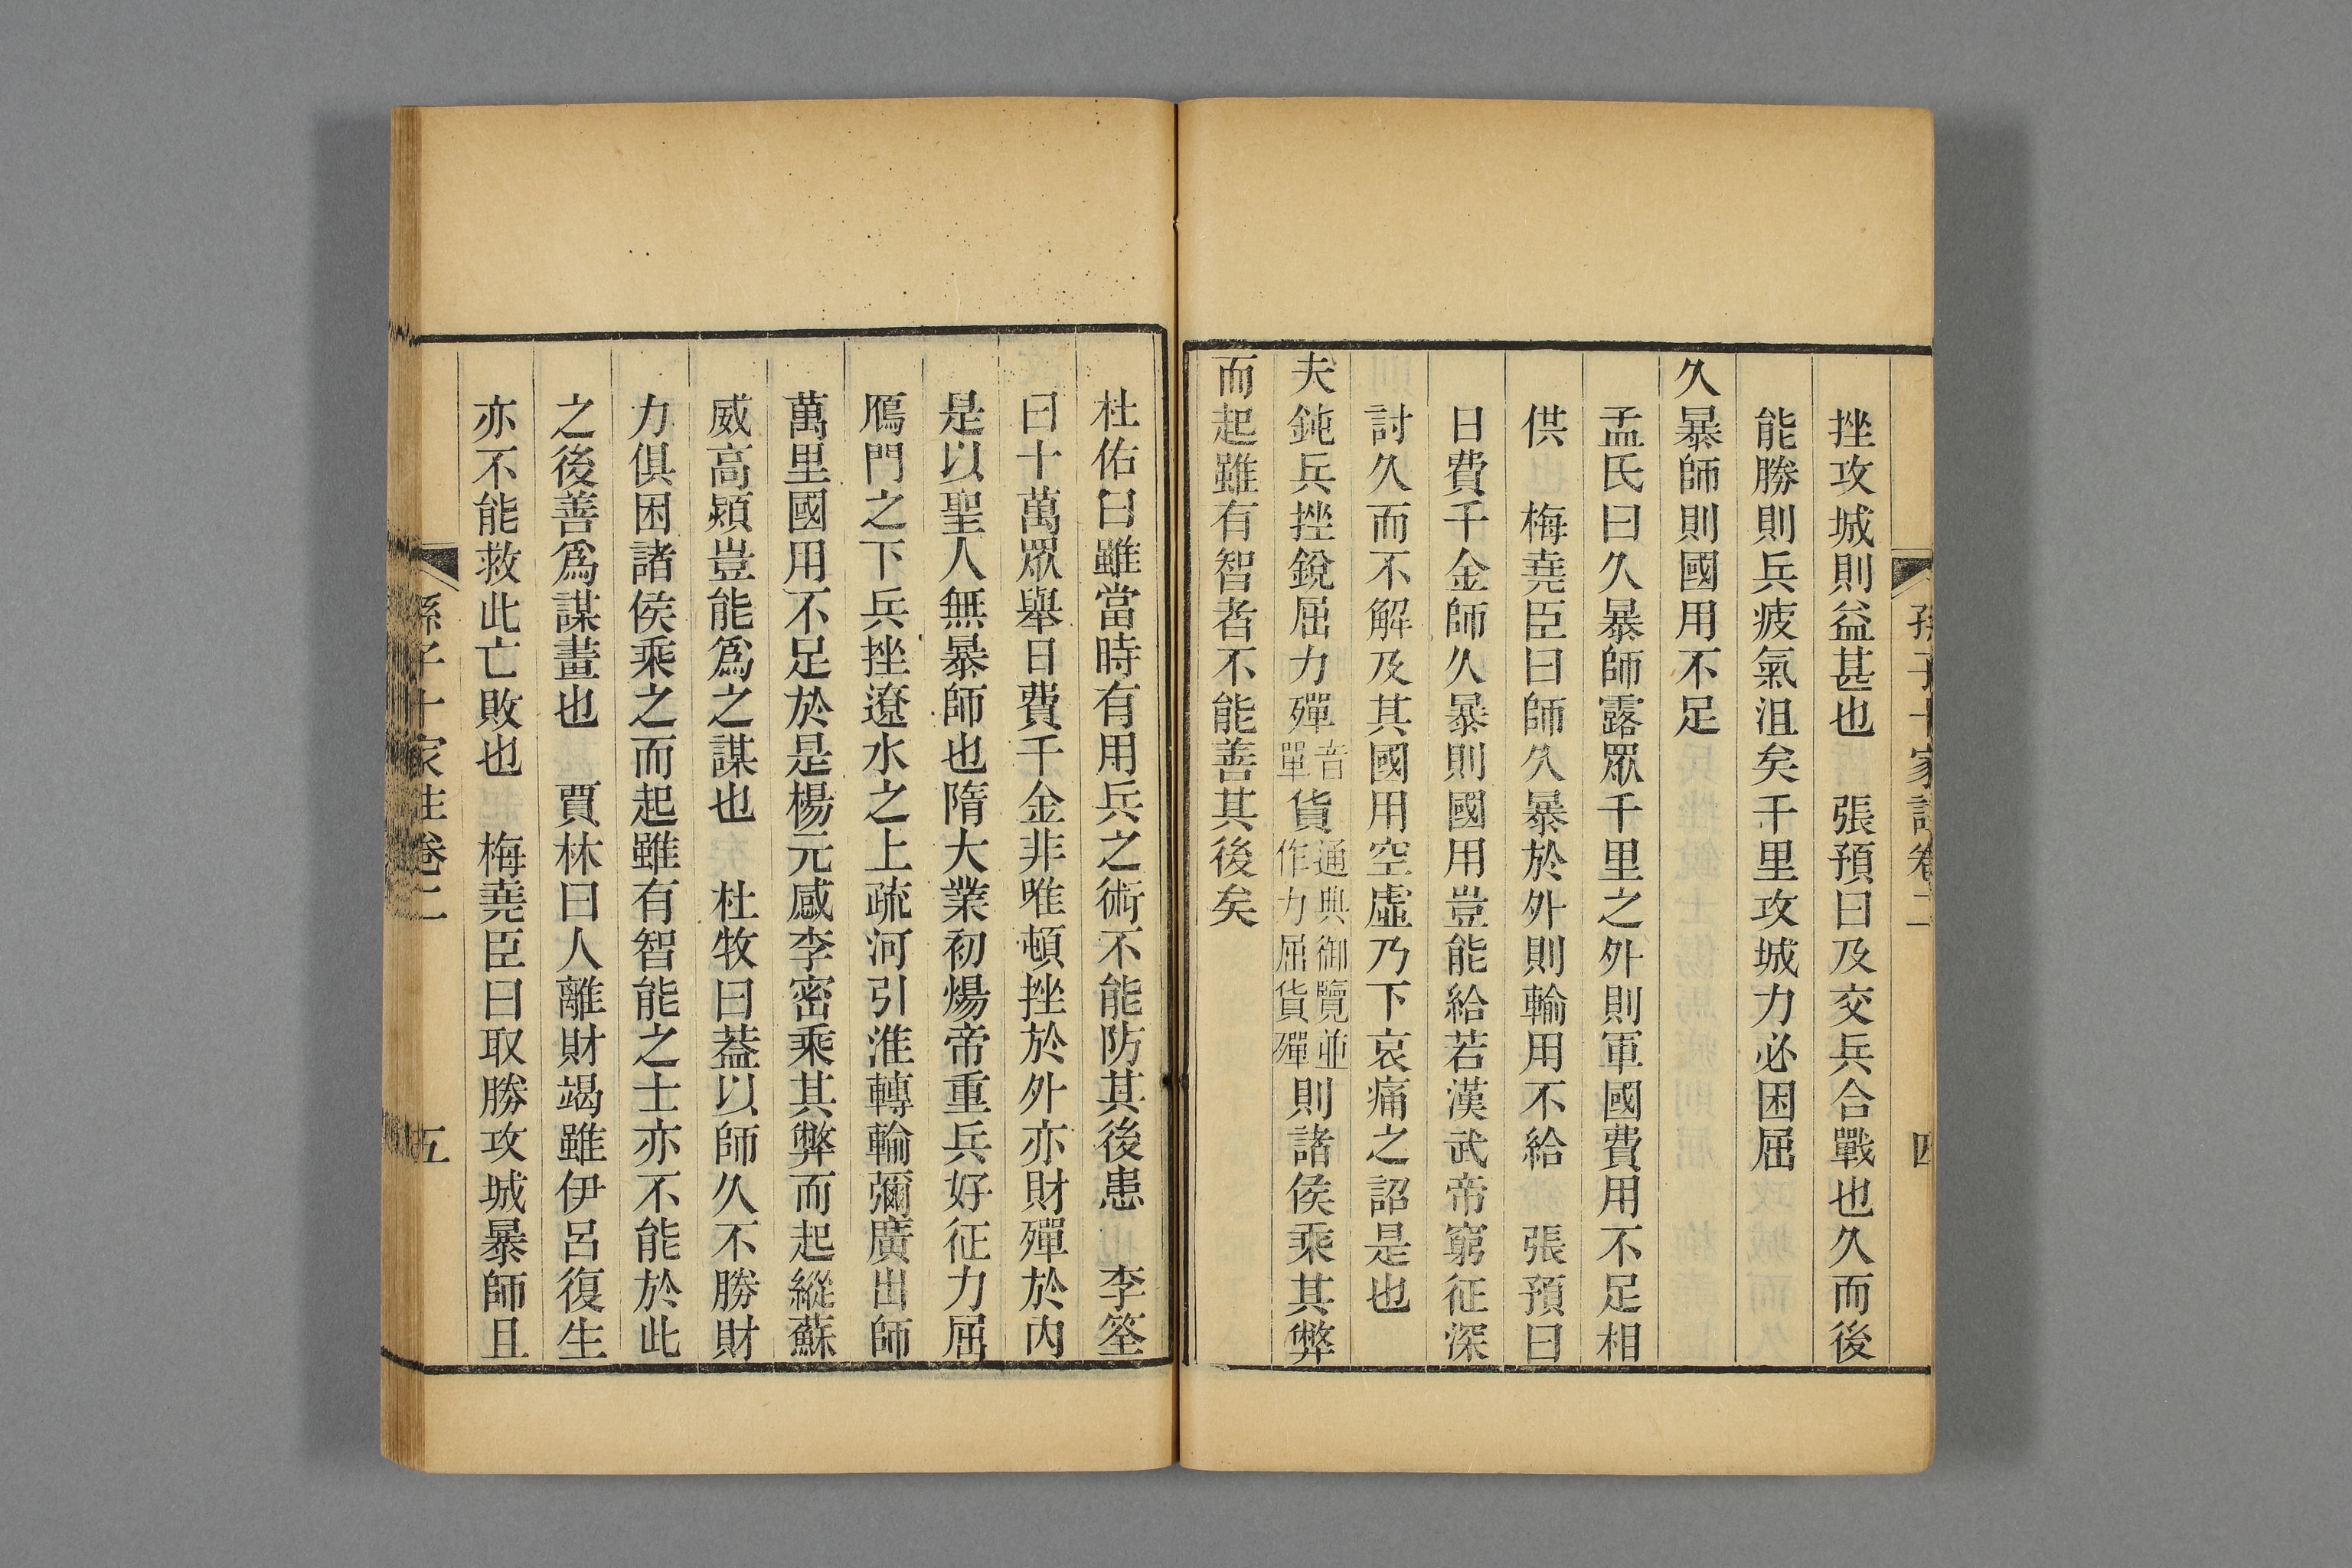 孫子十家註卷二 四
挫攻城則益甚也 張預曰及交兵合戰也久而後
能勝則兵疲氣沮矣千里攻城力必困屈
久暴師則國用不足
孟氏曰久暴師露眾千里之外則軍國費用不足相
供 梅堯臣曰師久暴於外則輸用不給 張預曰
日費千金師久暴則國用豈能給若漢武帝窮征深
討久而不解及其國用空虛乃下哀痛之詔是也
夫鈍兵挫銳屈力殫音單貨通典御覽並作力屈貨殫則諸侯乘其弊
而起雖有智者不能善其後矣
杜佑曰雖當時有用兵之術不能防其後患 李筌
曰十萬眾舉日費千金非唯頓挫於外亦財殫於內
是以聖人無暴師也隋大業初煬帝重兵好征力屈
鴈門之下兵挫遼水之上疏河引淮轉輸彌廣出師
萬里國用不足於是楊元感李密乘其弊而起縱蘇
威高熲豈能爲之謀也 杜牧曰蓋以師久不勝財
力俱困諸侯乘之而起雖有智能之士亦不能於此
之後善爲謀畫也 賈林曰人離財竭雖伊呂復生
亦不能救此亡敗也 梅堯臣曰取勝攻城暴師且
孫子十家註卷二 五